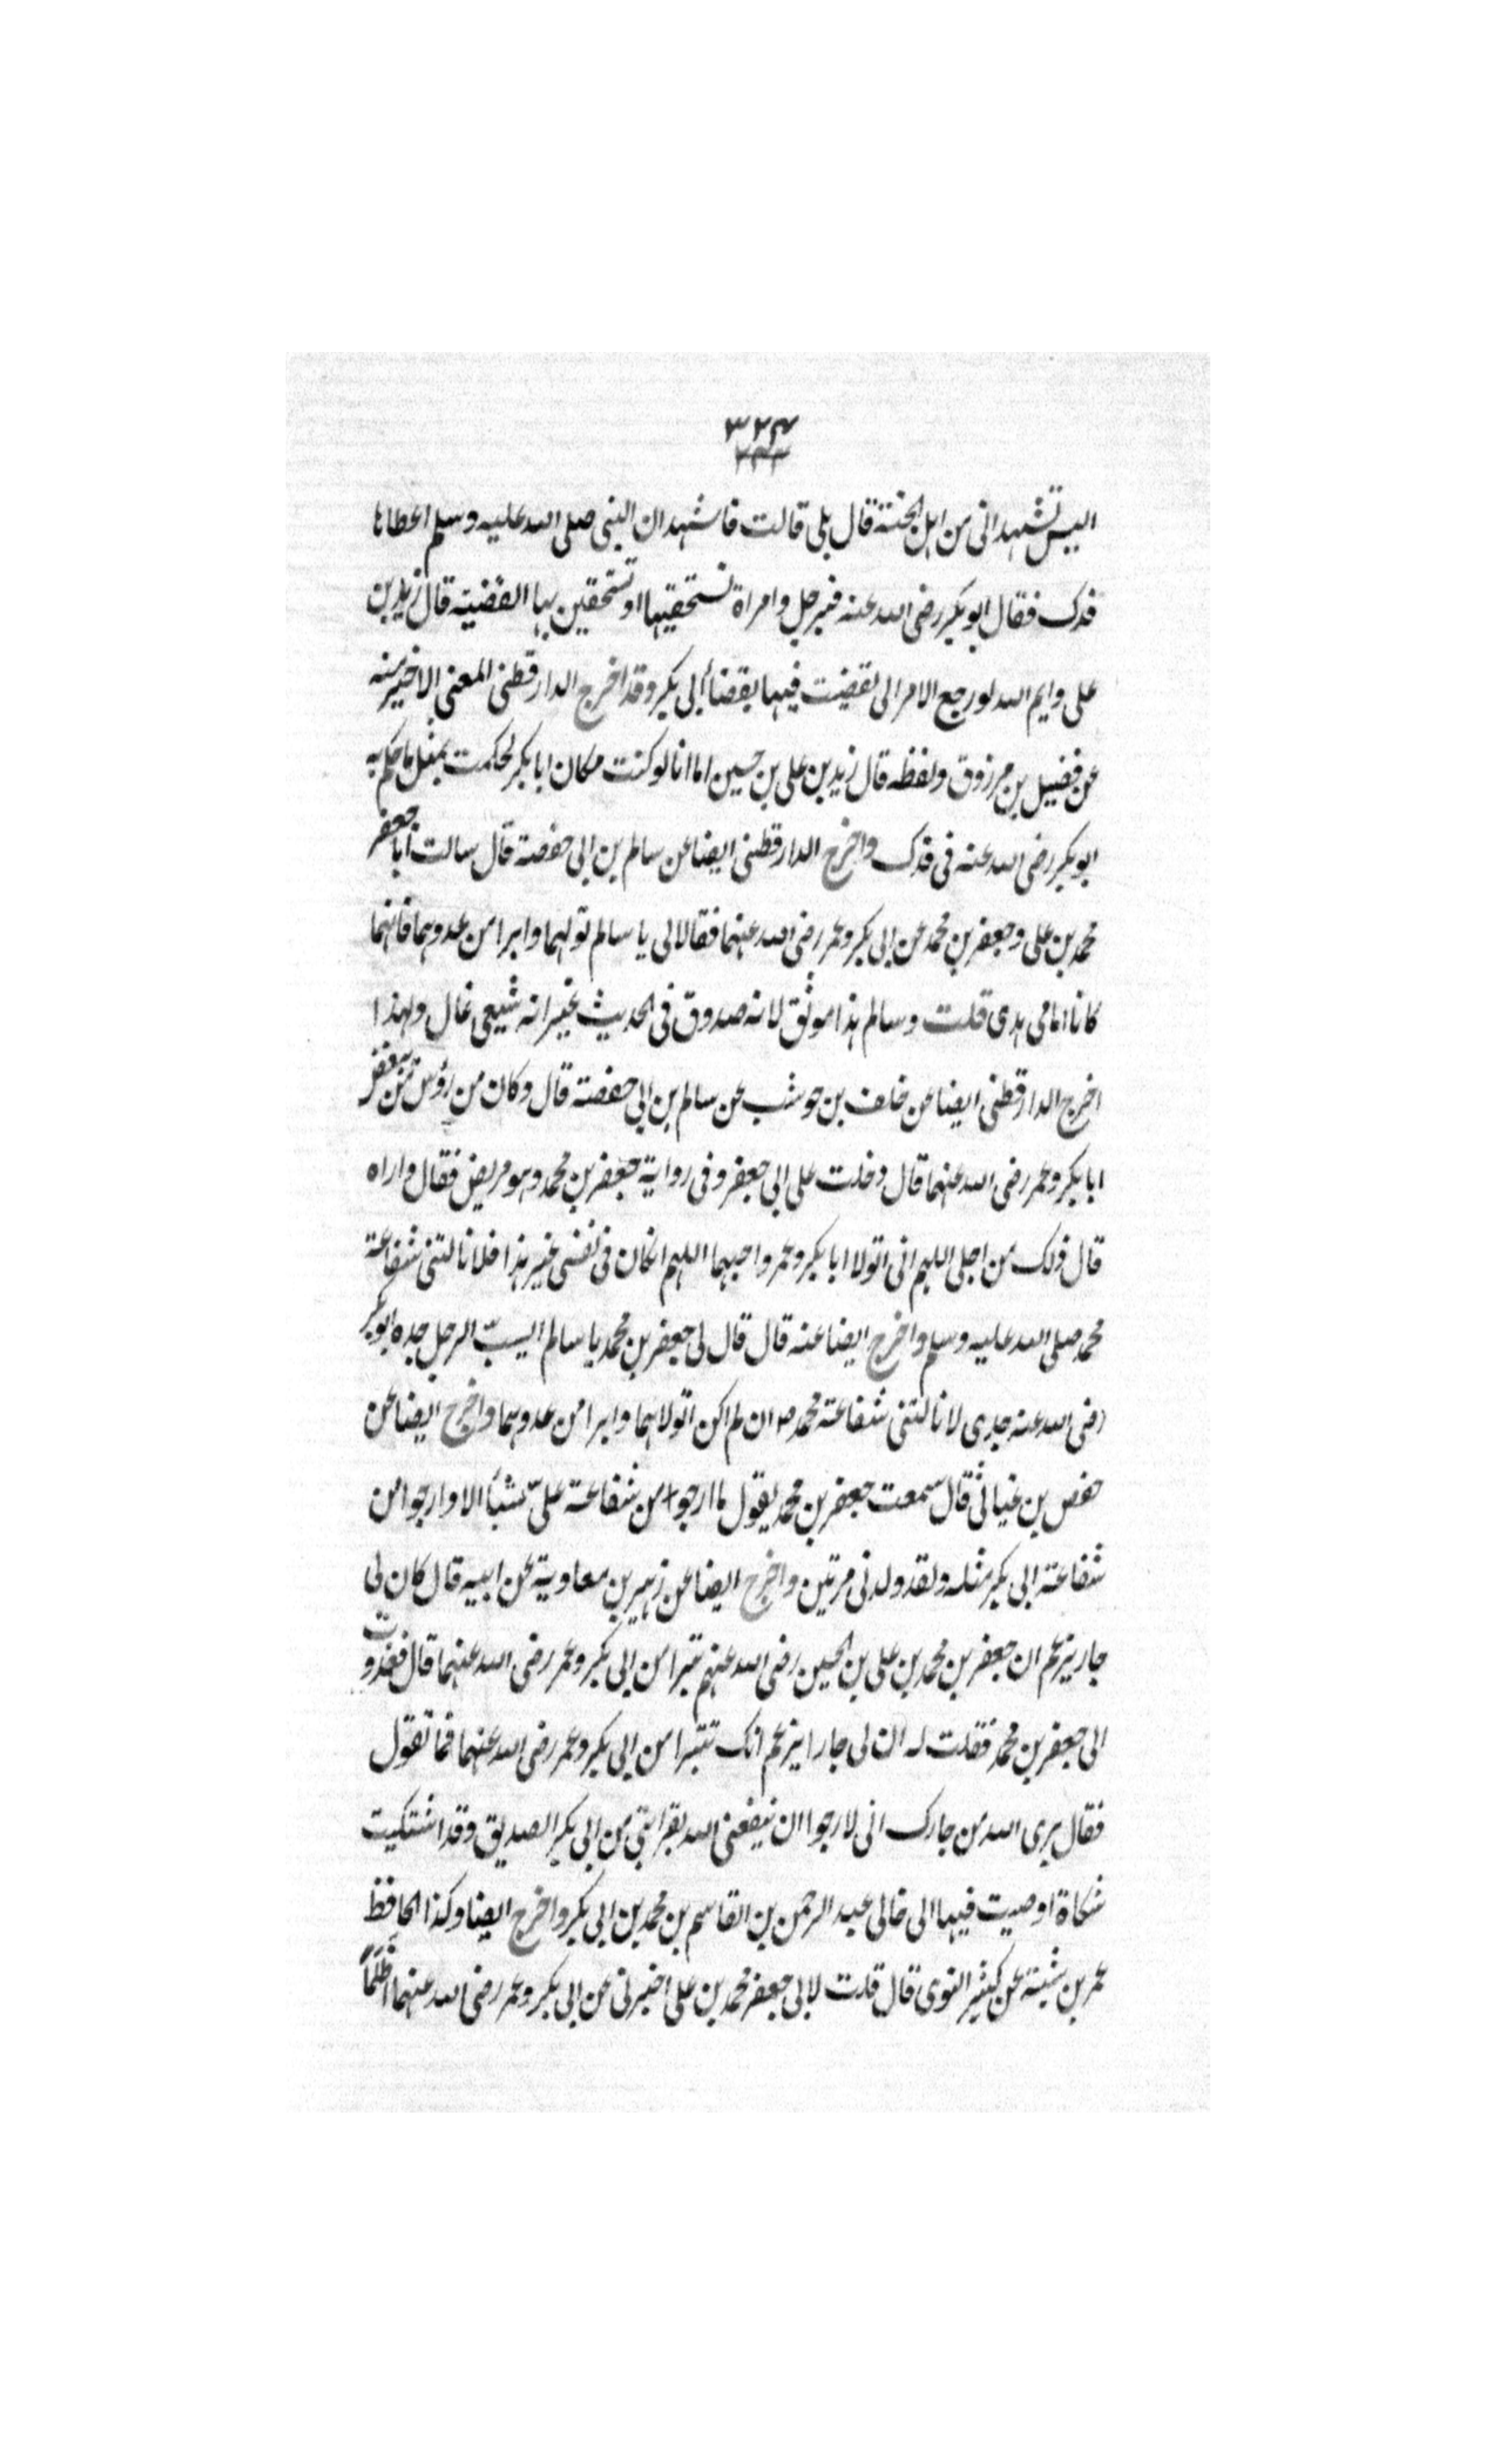 ٣٢٤
٣٢٣
اليس تشهد انى من اهل الجنة قال بلى قالت فاشهد ان النبى صلى الله عليه وسلم اعطاها
فدك فقال ابو بكر رضى الله عنه فبرجل وامراة تستحقيها او تستحقين بها القضية قال زيد بن
على وايم الله لو رجع الامر الى لقضيت فيها بقضاء ابى بكر وقد اخرج الدارقطنى المعنى الاخير منه
عن فضيل بن مرزوق ولفظه قال زيد بن على بن حسين اما انا لو كنت مكان ابا بكر لحكمت بمثل ما حكم به
ابو بكر رضى الله عنه فى فدك واخرج الدارقطنى ايضا عن سالم بن ابى حفصة قال سالت ابا جعفر
محمد بن على وجعفر بن محمد عن ابى بكر وعمر رضى الله عنهما فقالا لى يا سالم تولهما وابرا من عدوهما فانهما
كانا امامى هدى قلت وسالم هذا موثق لانه صدوق فى الحديث غير انه شيعى غال ولهذا
اخرج الدارقطنى ايضا عن خلف بن حوشب عن سالم بن ابى حفصة قال وكان من رؤس من
ابا بكر وعمر رضى الله عنهما قال دخلت على ابى جعفر وفى رواية جعفر بن محمد وهو مريض فقال واراه
قال ذلك من اجلى اللهم انى اتولا ابا بكر وعمر واحبهما اللهم انكان فى نفسى غير هذا فلا نالتنى شفاعة
محمد صلى الله عليه وسلم واخرج ايضا عنه قال قال لى جعفر بن محمد يا سالم ايسبّ الرجل جده ابو بكر
رضى الله عنه جدى لا نالتنى شفاعة محمد صـ ان لم اكن اتولاهما وابرا من عدوهما واخرج ايضا عن
حفص بن غياث قال سمعت جعفر بن محمد يقول ما ارجوا من شفاعة علىّ شيأ الا وارجوا من
شفاعة ابى بكر مثله ولقد ولدنى مرتين واخرج ايضا عن زهير بن معاوية عن ابيه قال كان لى
جار يزعم ان جعفر بن محمد بن على بن الحسين رضى الله عنهم تبرا من ابى بكر وعمر رضى الله عنهما قال فغدوت
الى جعفر بن محمد فقلت له ان لى جارا يزعم انك تتبرا من ابى بكر وعمر رضى الله عنهما فما تقول
فقال برى الله من جارك انى لارجوا ان ينفعنى الله بقرابتى من ابى بكر الصديق وقد اشتكيت
شكاة اوصيت فيها الى خالى عبد الرحمن بن القاسم بن محمد بن ابى بكر واخرج ايضا وكذا الحافظ
عمر بن شبة عن كثير النوى قال قلت لابى جعفر محمد بن على اخبرنى عن ابى بكر وعمر رضى الله عنهما اظلما